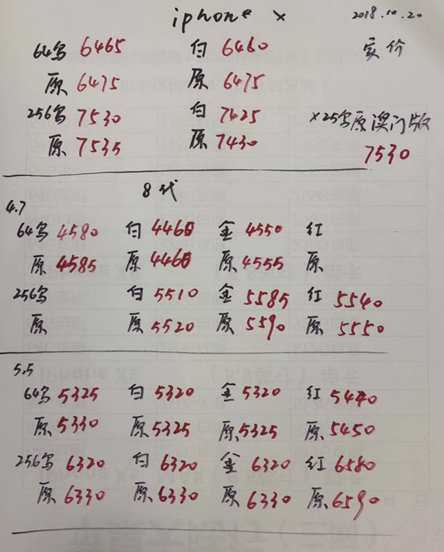 iphone X 2018.10.20
64黑 6465 白 6460 实价
原 6475 原 6475
256黑 7530 白 7425 X256黑原澳门版
原 7535 原 7430 7530
8代
4.7
64黑 4580 白 4460 金 4550 红
原 4585 原 4460 原 4555 原
256黑 白 5510 金 5585 红 5540
原 原 5520 原 5590 原 5550
5.5
64黑 5325 白 5320 金 5320 红 5440
原 5330 原 5325 原 5325 原 5450
256黑 6320 白 6320 金 6320 红 6580
原 6330 原 6330 原 6330 原 6590